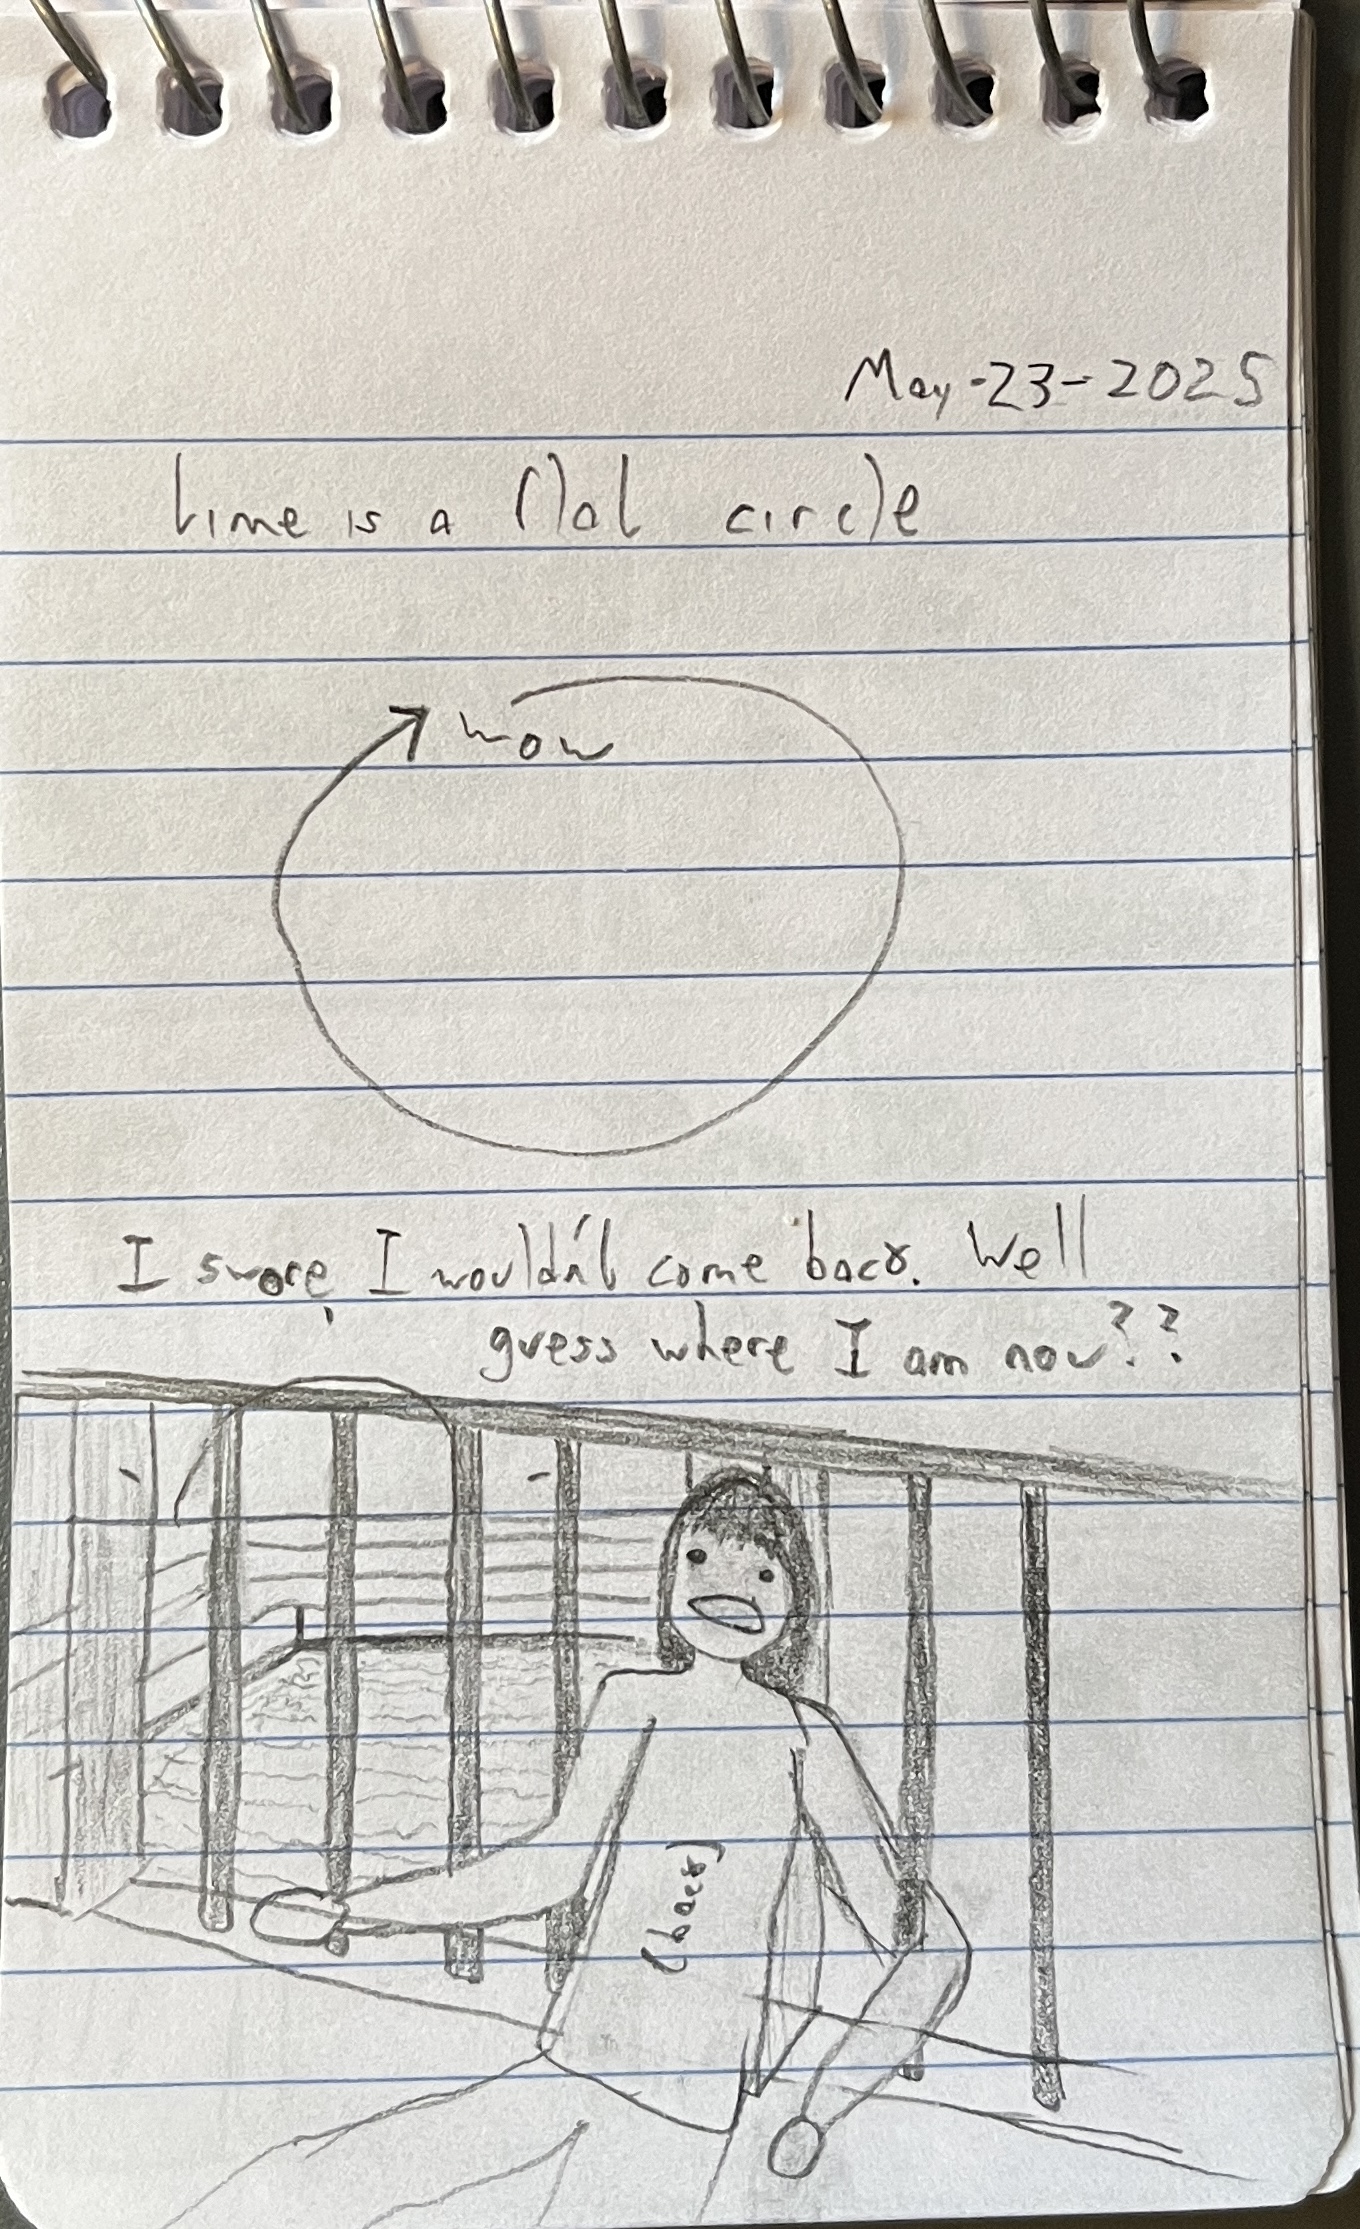 May-23-2025
time is a flat circle
now
I swore, I wouldn't come back. Well
guess where I am now??
(back)